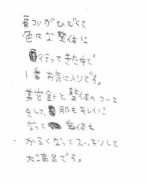 肩コリがひどくて
色々な整体に
行ってきた中で
1番お気に入りです。
美容針と整体のコース
をして肌もキレイに
なって身体も
かるくなってスッキリして
大満足です。